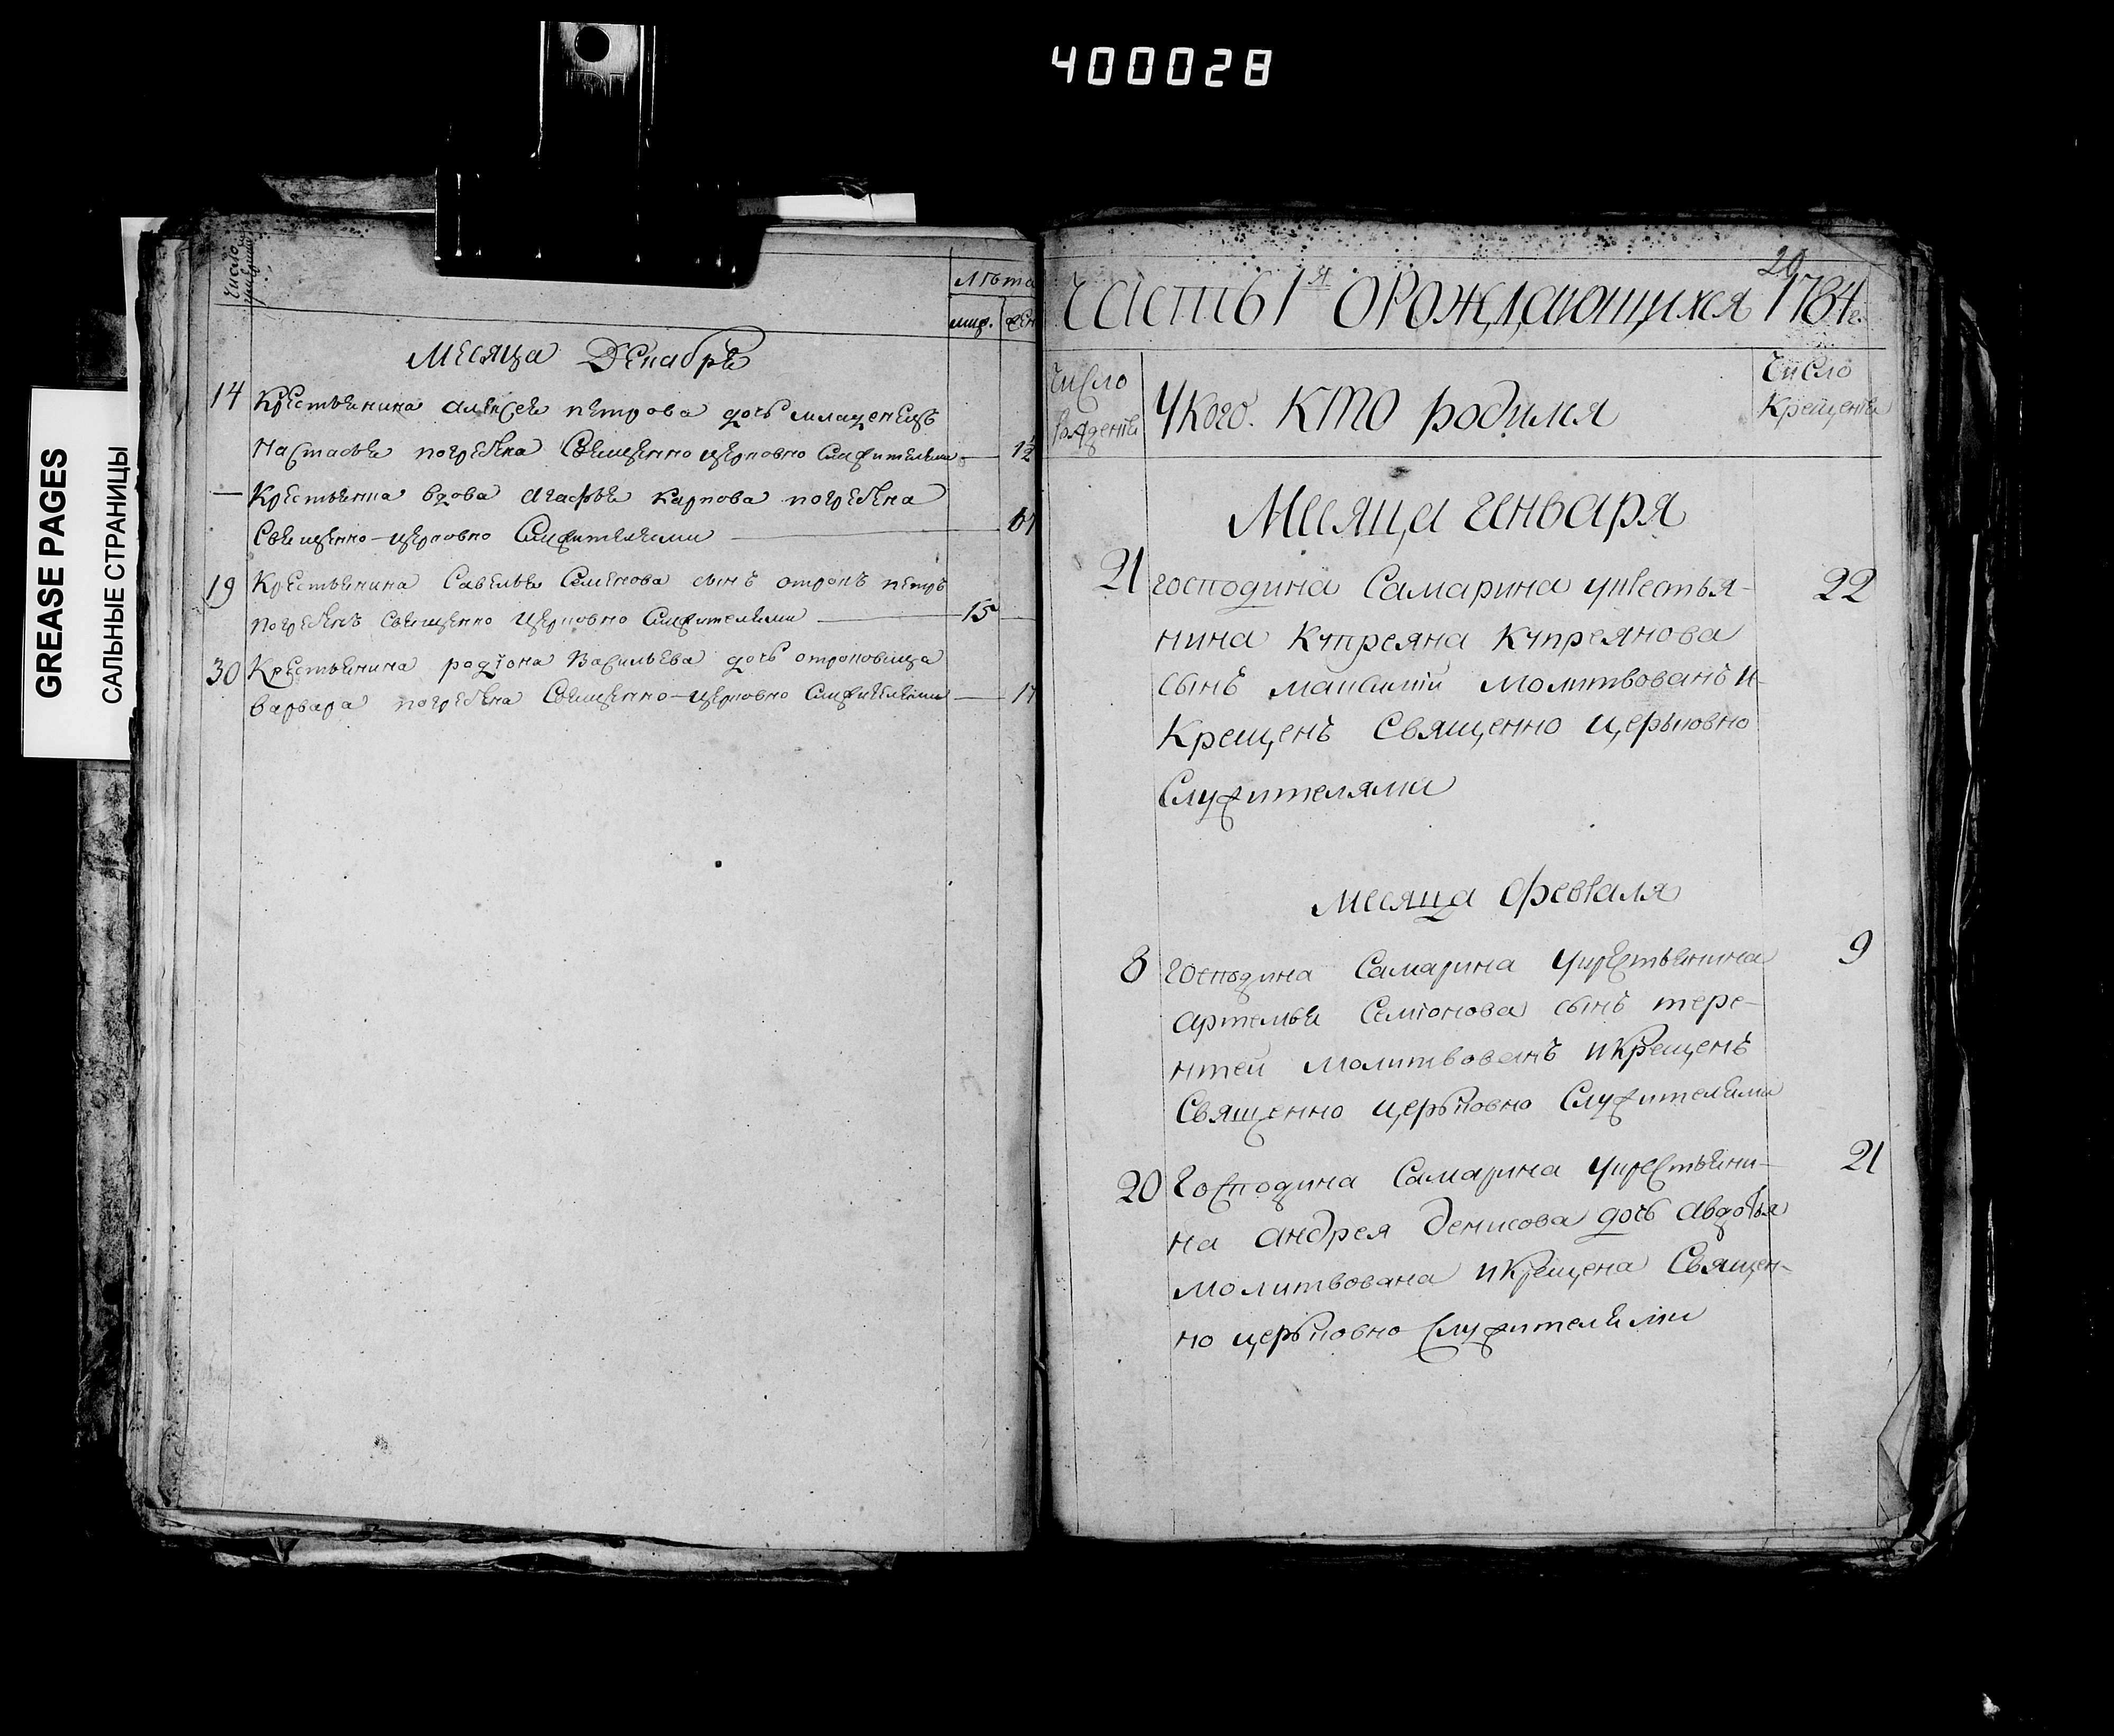 400028
GREASE PAGES
САЛЬНЫЕ СТРАНИЦЫ
Число
Лѣта
муж. жен
Месяца Декабря
14 Крестьянина алексея петрова дочь младенецъ
Настасья погребена Священно церковно Служителями 12
— Крестьянка вдова агафья карпова погребена
Священно-церковно Служителями
19 Крестьянина Савелья Семенова сынъ отрокъ петръ
погребенъ Священно Церковно Служителями 15
30 Крестьянина родіона Васильева дочь отроковица
варвара погребена Священно-церковно Служителями
20
Часть 1я О Рождающихся 1784 г.
Число рождения
У Кого. КТО родился
Число Крещения
Месяца генваря
21 господина Самарина укрестья- 22
нина Купреяна Купреянова
сынъ маисимъ молитвованъ и
Крещенъ Священно церьковно
Служителями
Месяца февраля
8 господина Самарина укрестьянина 9
артемья Семіонова сынъ тере-
нтей молитвованъ икрещенъ
Священно церьковно Служителями
20 Господина Самарина укрестьяни- 21
на андрея денисова дочь авдотья
молитвована икрещена Священ-
но церьковно Служителями